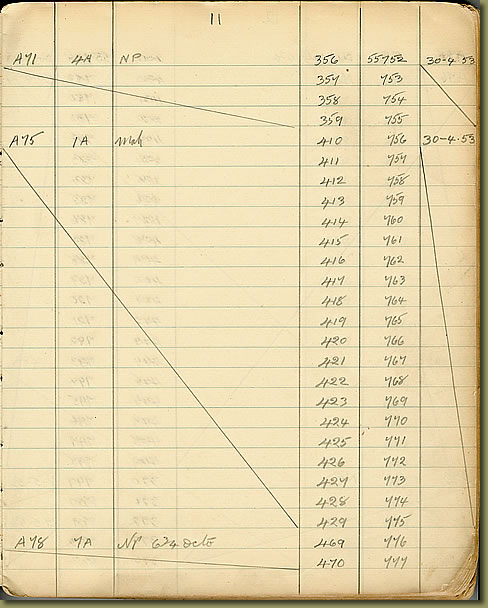 11
A71 4A NP 356 55752 30-4-53
357 753
358 754
359 755
A75 1A 410 756 30-4-53
411 757
412 758
413 759
414 760
415 761
416 762
417 763
418 764
419 765
420 766
421 767
422 768
423 769
424 770
425 771
426 772
427 773
428 774
429 775
A78 7A NP 469 776
470 777